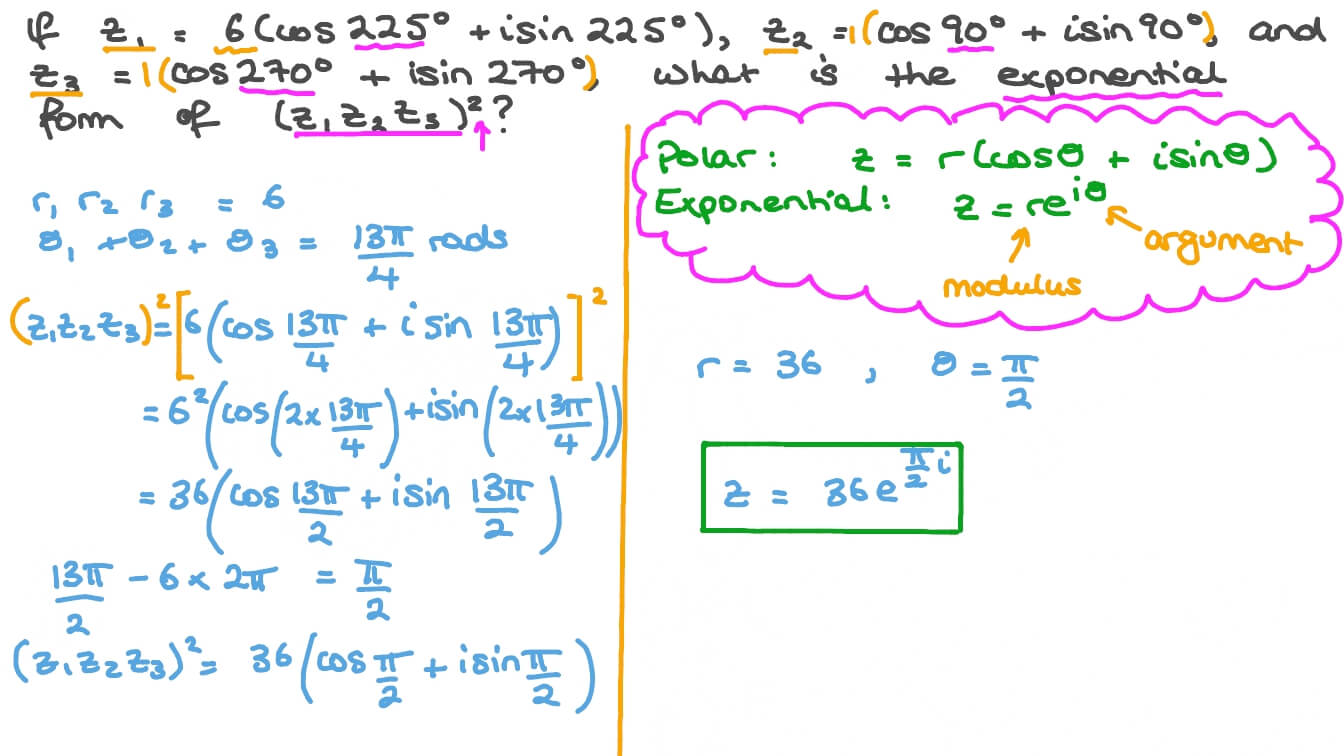 If z₁ = 6(cos 225° + isin 225°), z₂ = 1(cos 90° + isin 90°), and
z₃ = 1(cos 270° + isin 270°), what is the exponential
form of (z₁ z₂ z₃)²?
r₁ r₂ r₃ = 6
θ₁ + θ₂ + θ₃ = 13π/4 rads
(z₁z₂z₃)² = [6(cos 13π/4 + i sin 13π/4)]²
= 6²(cos(2x 13π/4) + isin(2x 13π/4))
= 36(cos 13π/2 + isin 13π/2)
13π/2 − 6 x 2π = π/2
(z₁z₂z₃)² = 36(cos π/2 + isin π/2)
Polar: z = r(cosθ + isinθ)
Exponential: z = re^iθ
argument
modulus
r = 36 , θ = π/2
z = 36e^π/2 i